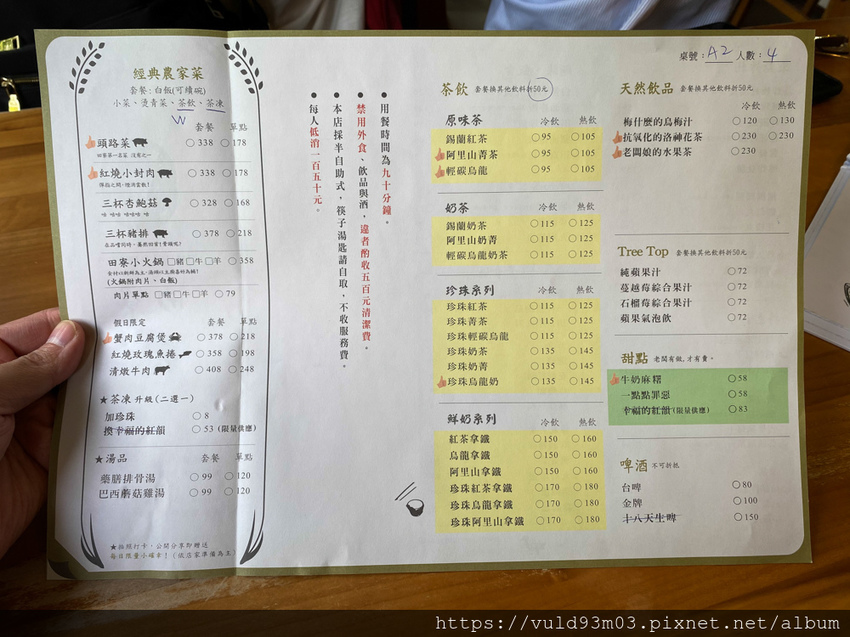 桌號: A2 人數: 4
經典農家菜
套餐: 白飯(可續碗)
小菜、燙青菜、茶飲、茶凍
W
套餐 單點
頭路菜 338 178
田寮第一名菜 沒有之一
紅燒小封肉 338 178
三杯杏鮑菇 328 168
三杯豬排 378 218
田寮小火鍋 豬 牛 羊 358
(火鍋附肉片、白飯)
肉片單點 豬 牛 羊 79
假日限定 套餐 單點
蟹肉豆腐煲 378 218
紅燒玫瑰魚捲 358 198
清燉牛肉 408 248
★茶凍 升級(二選一)
加珍珠 8
換幸福的紅韻 53 (限量供應)
★湯品 套餐 單點
藥膳排骨湯 99 120
巴西蘑菇雞湯 99 120
★拍照打卡,公開分享即贈送
每日限量小確幸!(依店家準備為主)
●用餐時間為九十分鐘。
●禁用外食、飲品與酒,違者酌收五百元清潔費。
●本店採半自助式,筷子湯匙請自取,不收服務費。
●每人低消一百五十元。
茶飲 套餐換其他飲料折50元
原味茶 冷飲 熱飲
錫蘭紅茶 95 105
阿里山菁茶 95 105
輕碳烏龍 95 105
奶茶 冷飲 熱飲
錫蘭奶茶 115 125
阿里山奶菁 115 125
輕碳烏龍奶茶 115 125
珍珠系列 冷飲 熱飲
珍珠紅茶 115 125
珍珠菁茶 115 125
珍珠輕碳烏龍 115 125
珍珠奶茶 135 145
珍珠奶菁 135 145
珍珠烏龍奶 135 145
鮮奶系列 冷飲 熱飲
紅茶拿鐵 150 160
烏龍拿鐵 150 160
阿里山拿鐵 150 160
珍珠紅茶拿鐵 170 180
珍珠烏龍拿鐵 170 180
珍珠阿里山拿鐵 170 180
天然飲品 套餐換其他飲料折50元
冷飲 熱飲
梅什麼的烏梅汁 120 130
抗氧化的洛神花茶 230 230
老闆娘的水果茶 230
Tree Top 套餐換其他飲料折50元
純蘋果汁 72
蔓越莓綜合果汁 72
石榴莓綜合果汁 72
蘋果氣泡飲 72
甜點 老闆有做,才有賣。
牛奶麻糬 58
一點點罪惡 58
幸福的紅韻(限量供應) 83
啤酒 不可折抵
台啤 80
金牌 100
十八天生啤 150
https://vuld93m03.pixnet.net/album